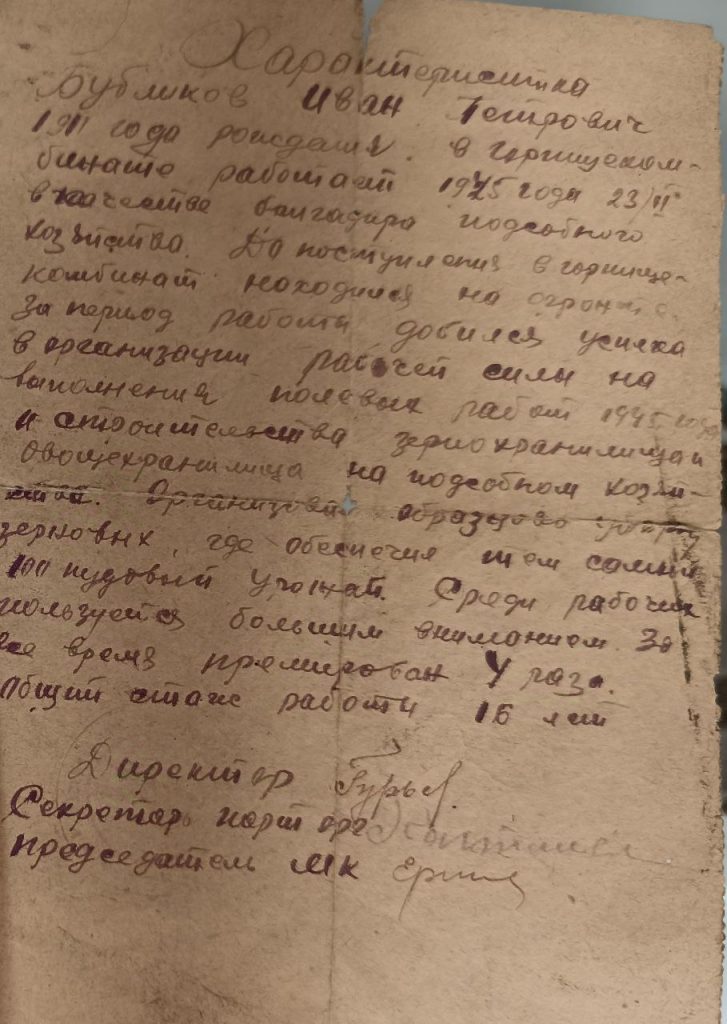 Характеристика
Бубликов Иван Петрович
1911 года рождения. в горпищеком-
бинате работает 1945 года 23/II
в качестве бригадира подсобного
хозяйства. До поступления в горпище-
комбинат находился на
за период работы добился успеха
в организации рабочей силы на
выполнения полевых работ 1945 года
и строительства зернохранилища и
овощехранилища на подсобном хозяй-
стве. Организовал образцово уборку
зерновых, где обеспечил тем самым
100 пудовый урожай. Среди рабочих
пользуется большим вниманием. За
все время премирован 4 раза.
Общий стаж работы 16 лет
Директор Гурьев
Секретарь парт орг
Председатель МК